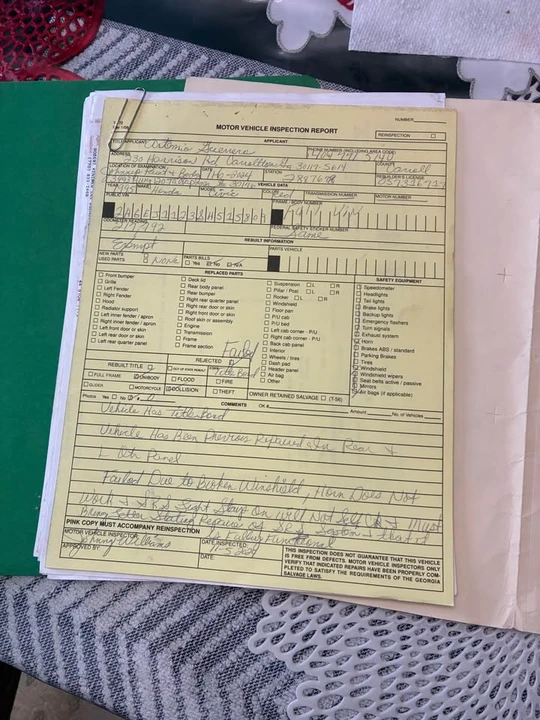 NUMBER
T-22
MOTOR VEHICLE INSPECTION REPORT
REINSPECTION
TITLE/APPLICANT APPLICANT
Antonio Guerrero
PHONE NUMBER (INCLUDING AREA CODE)
ADDRESS
230 Harrison Rd Carrollton Ga 30117
COUNTY
Carroll
LOCATION OF EXAMINATION
DATE
STATION
REBUILDER'S LICENSE
VEHICLE DATA
YEAR MAKE MODEL COLOR TRANSMISSION NUMBER MOTOR NUMBER
1995 Honda Civic Red
PUBLIC VIN
FRAME / BODY NUMBER
ODOMETER READING
FEDERAL SAFETY STICKER NUMBER
Exempt
Same
REBUILT INFORMATION
NEW PARTS
USED PARTS
None
PARTS BILLS
Yes No N/A
PARTS VEHICLE
REPLACED PARTS
SAFETY EQUIPMENT
Front bumper
Grille
Left Fender
Right Fender
Hood
Radiator support
Left inner fender / apron
Right inner fender / apron
Left front door / skin
Left rear door or skin
Left rear quarter panel
Deck lid
Rear body panel
Rear bumper
Right rear quarter panel
Right rear door or skin
Right front door or skin
Roof skin or assembly
Engine
Transmission
Frame
Frame section
Suspension L R
Pillar / Post L R
Rocker L R
Windshield
Floor pan
P/U cab
P/U bed
Left cab corner - P/U
Right cab corner - P/U
Back cab panel
Interior
Wheels / tires
Dash pad
Header panel
Air bag
Other
Speedometer
Headlights
Tail lights
Brake lights
Backup lights
Emergency flashers
Turn signals
Exhaust system
Horn
Brakes ABS / standard
Parking Brakes
Tires
Windshield
Windshield wipers
Seat belts active / passive
Mirrors
Air bags (if applicable)
Failed
REBUILT TITLE
REJECTED
OUT OF STATE REBUILT
Title Bond
FULL FRAME
UNIBODY
FLOOD
FIRE
GLIDER
MOTORCYCLE
COLLISION
THEFT
OWNER RETAINED SALVAGE (T-56)
Photos Yes No
COMMENTS
CK #
Amount
No. of Vehicles
Vehicle Has Title Bond
Vehicle Has Been Previous Repaired In Rear &
L Qtr Panel
Failed Due to Broken Winshield, Horn Does Not
Work & SRS Light Stays on will Not Self &  Must
Bring Letter Stating
PINK COPY MUST ACCOMPANY REINSPECTION
MOTOR VEHICLE INSPECTOR
Johnny Williams
DATE INSPECTED:
APPROVED BY:
DATE:
THIS INSPECTION DOES NOT GUARANTEE THAT THIS VEHICLE
IS FREE FROM DEFECTS. MOTOR VEHICLE INSPECTORS ONLY
VERIFY THAT INDICATED REPAIRS HAVE BEEN PROPERLY COM-
PLETED TO SATISFY THE REQUIREMENTS OF THE GEORGIA
SALVAGE LAWS.